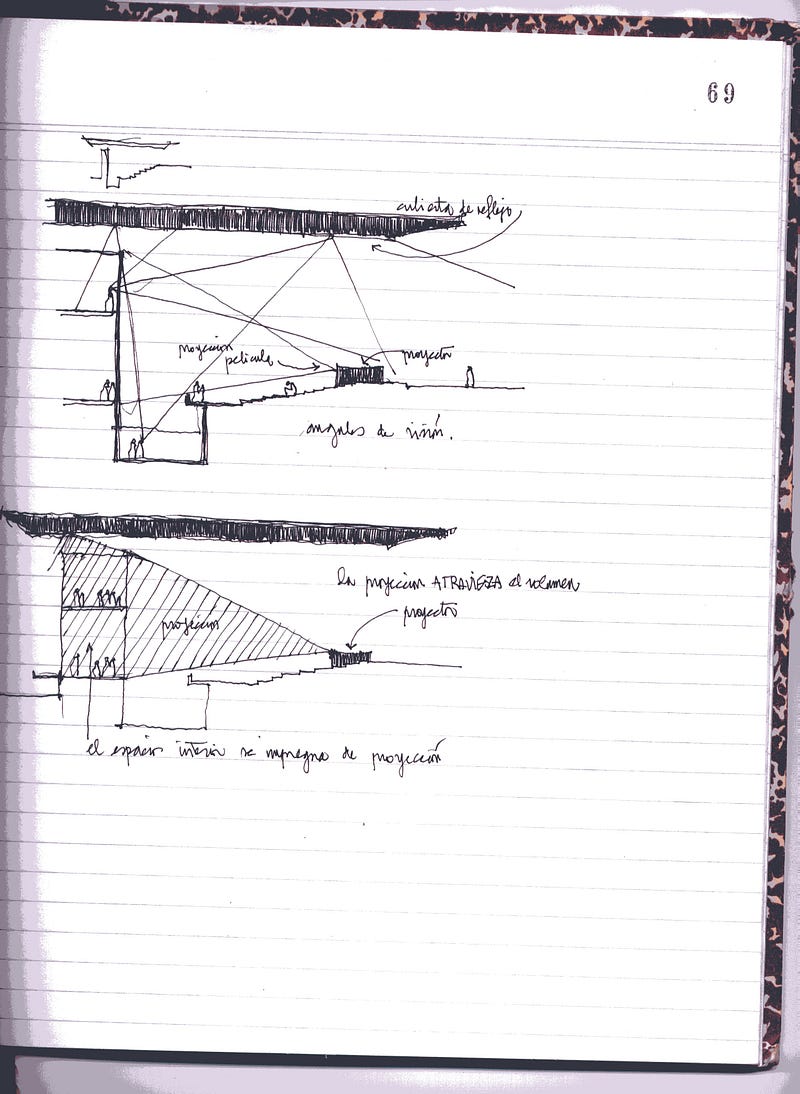 69
cubierta de reflejo
proyección
película
proyector
angulos de visión.
la proyeccion ATRAVIEZA el volumen
proyector
proyección
el espacio interior se impregna de proyección